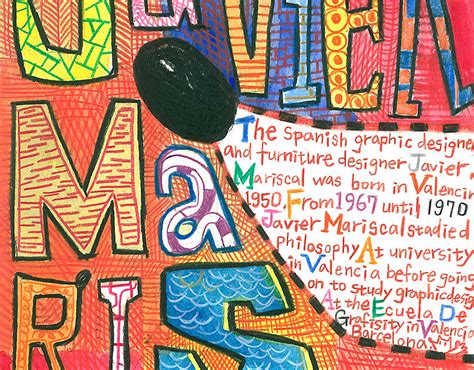 JaVIER
Ma
RIS
The Spanish graphic designer
and furniture designer Javier
Mariscal was born in Valencia
1950. From 1967 until 1970
Javier Mariscal studied
philosophy At university
in Valencia before going
on to study graphicdesign
At the Ecuela De
Grafisity in Valencia
Barcelona